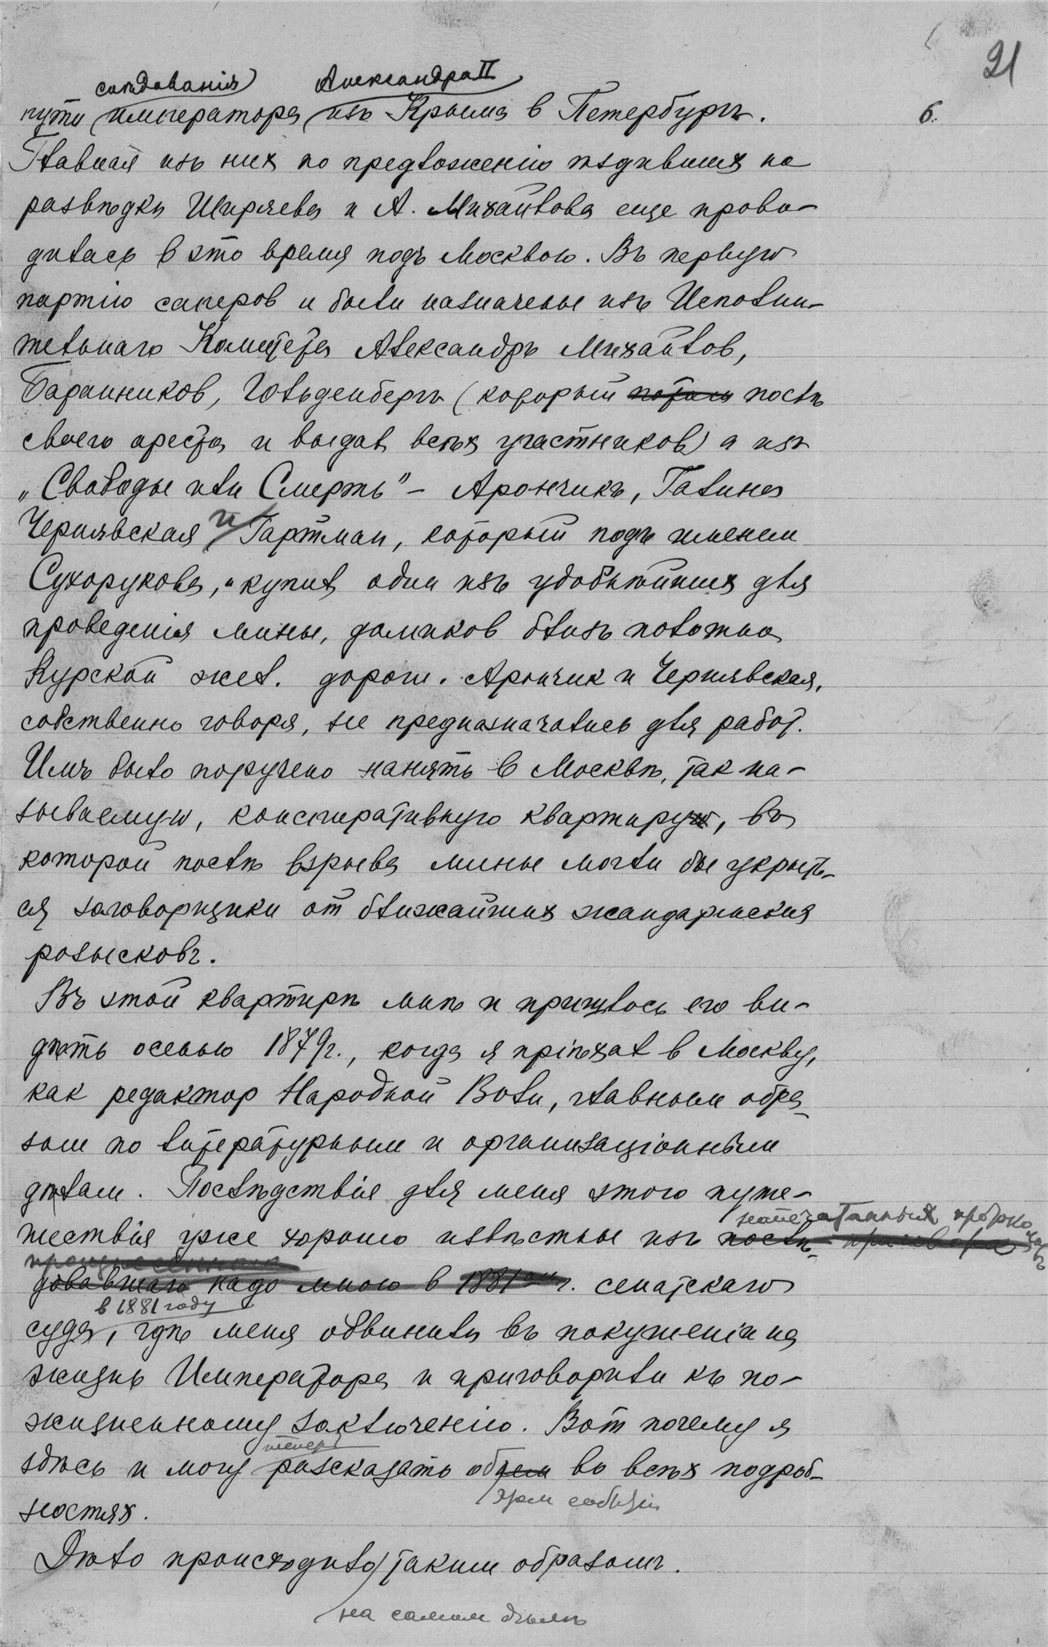 21
слѣдованія Александра II
пути императора изъ Крыма в Петербургъ. 6.
Главная изъ них по предложенію ѣздивших на
развѣдки Ширяева и А. Михайлова еще прово-
дилась в это время подъ Москвою. Въ первую
партію саперов и были назначены изъ Исполни-
тельнаго Комитета Александръ Михайлов,
Баранников, Гольденбергъ (который потом послѣ
своего ареста и выдав всѣх участников) а изъ
„Свободы или Смерть" – Арончикъ, Галина
Чернявская и Гартман, который подъ именем
Сухорукова, и купил один изъ удобнѣйших для
проведенія мины, домиков близь полотна
Курской жел. дороги. Арончик и Чернявская,
собственно говоря, не предназначались для работ.
Имъ было поручено нанять в Москвѣ, так на-
зываемую, конспиративную квартиру, въ
которой послѣ взрыва мины могли бы укрыть-
ся заговорщики от ближайших жандармских
розысковъ.
Въ этой квартирѣ мнѣ и пришлось его ви-
дѣть осенью 1879 г., когда я пріѣхал в Москву,
как редактор Народной Воли, главным обра-
зом по литературным и организаціонным
дѣлам. Послѣдствія для меня этого путе-
напечатанных
шествія уже хорошо извѣстны изъ послѣ- приговора
довавшаго надо мною в 1881 г. сенатскаго
в 1881 году
суда, гдѣ меня обвинили въ покушеніи на
жизнь Императора и приговорили къ по-
жизненному заключенію. Вот почему я
теперь
здѣсь и могу разсказать обо всем во всѣх подроб-
этом событіи
ностях.
Дѣло происходило таким образомъ.
на самом дѣлѣ